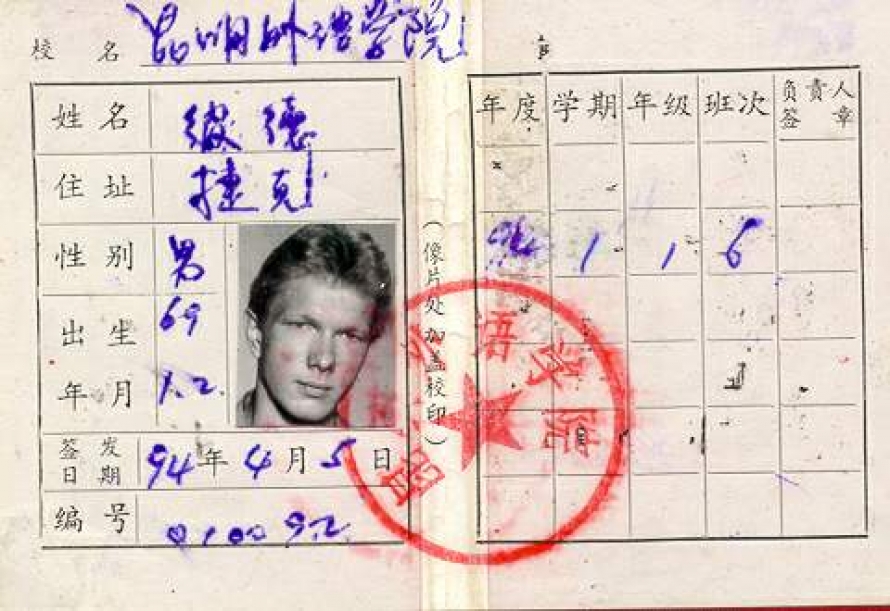 校 名 昆明外语学院
姓 名 彼德
住 址 捷克
性 别 男
出 生 69
年 月 1.2.
签 发
日 期 94 年 4 月 5 日
编 号 010092
(像片处加盖校印)
年度 学期 年级 班次 负责人签章
94 1 1 6
昆明外语学院